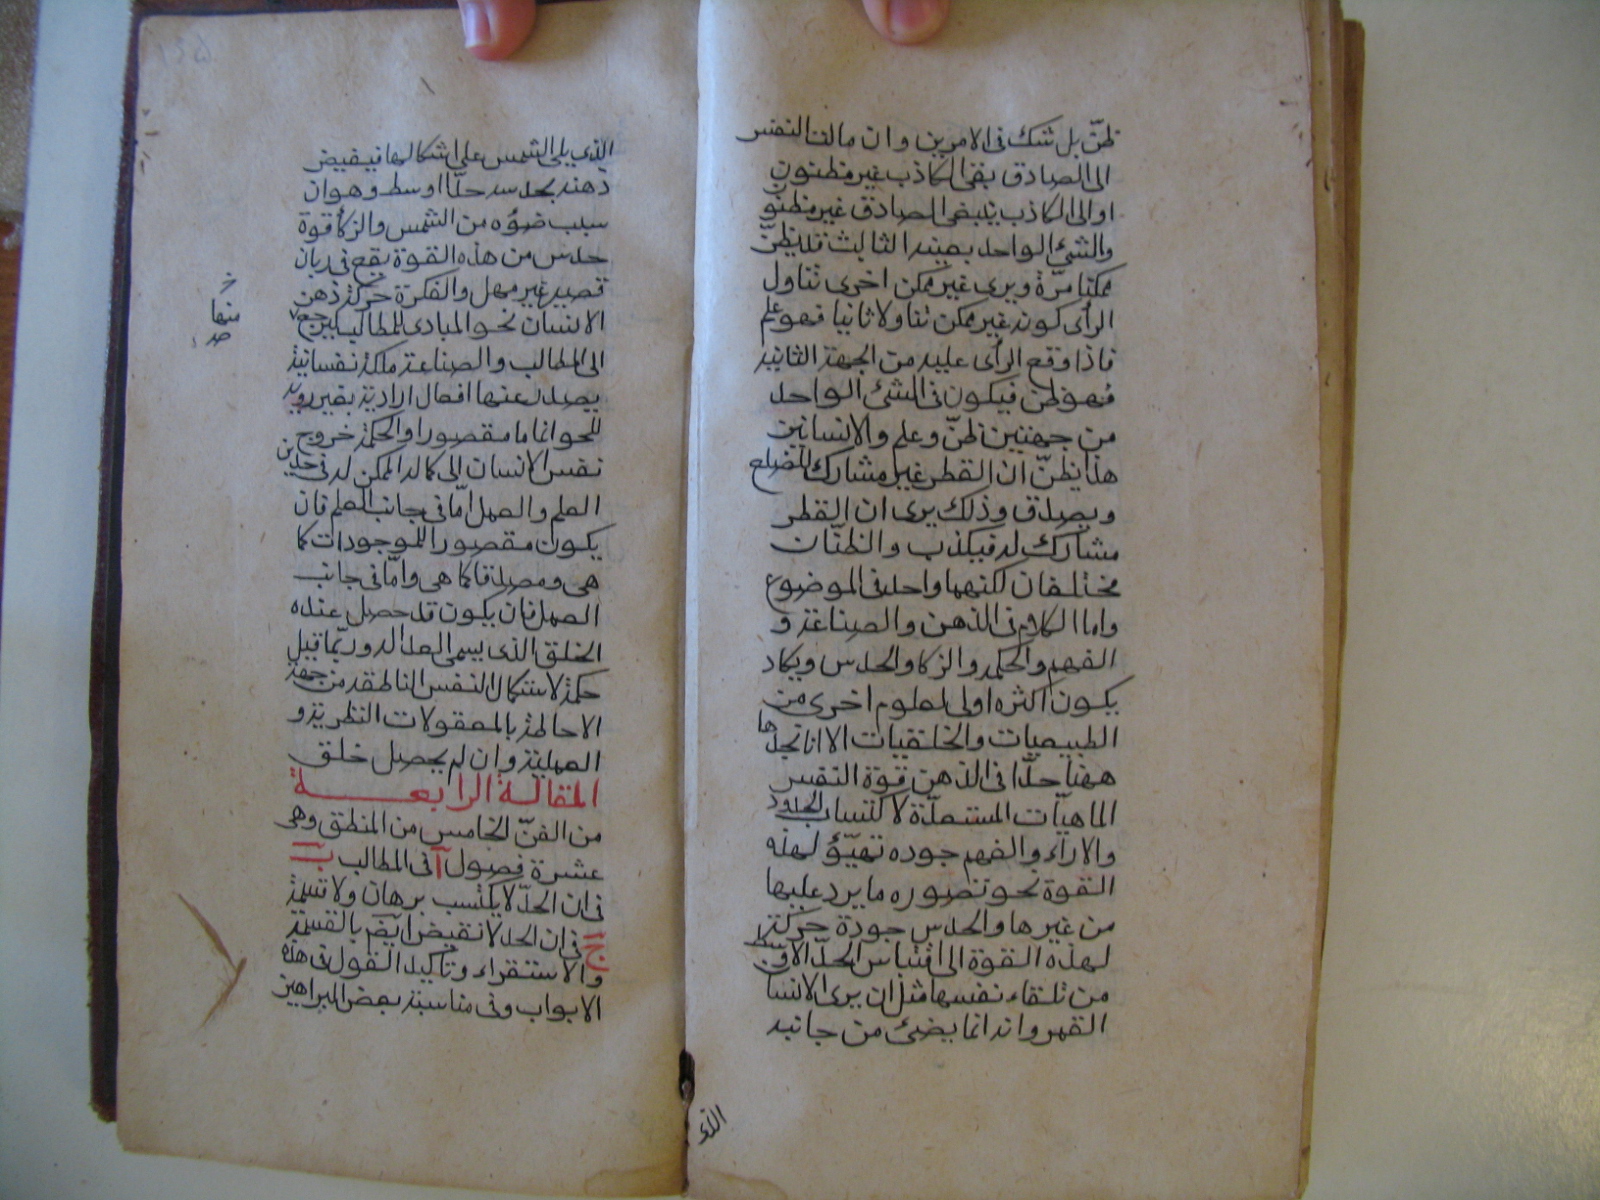 ظنّ بل شك فى الامرين وان مالت النفس
الى الصادق بقى الكاذب غير مظنون
او الى الكاذب يبقى الصادق غير مظنو
والشئ الواحد بعينه الثالث قد يظنّ
ممكنا مرّة ويرى غير ممكن اخرى تناول
الرأى كونه غير ممكن تناولا ثانيا فهو علم
فاذا وقع الرأى عليه من الجهة الثانيه
فهو ظن فيكون فى الشئ الواحد
من جهتين ظنّ وعلم والانسانين
هذا يظنّ ان القطر غير مشارك للضلع
ويصدق وذلك يرى ان القطر
مشارك له فيكذب والظنّان
مختلفان لكنهما واحد فى الموضوع
واما الكلام فى الذهن والصناعة و
الفهم والحكمه والزكا والحدس ويكاد
يكون اكثره اولى لعلوم اخرى من
الطبيعيات والخلقيات الا انا نحدها
ههنا حدّا فى الذهن قوّة النفس
الماهيّات المستعدّة لاكتساب الحدود
والاراء والفهم جوده تهيّؤ لهذه
القوة نحو تصوره ما يرد عليها
من غيرها والحدس جودة حركة
لهذه القوة الى اقتباس الحدّ الاوسط
من تلقاء نفسها مثل ان يرى الانسا
القمر وانه انما يضئ من جانبه
الذى
الذى يلى الشمس على اشكالها فيفيض
ذهنه بحدسه حدّا اوسط وهو ان
سبب ضوءه من الشمس والزكا قوة
حدس من هذه القوة يقع فى زمان
قصير غير مهل والفكرة حركة ذهن
الانسان نحو المبادى للمطالب ليرجع
منها
الى المطالب والصناعة ملكة نفسانية
يصدر عنها افعال ارادية بغير روية
للحو انما ما مقصورا والحكمة خروج
نفس الانسان الى كماله الممكن له فى حدين
العلم والعمل امّا فى جانب العلم فان
يكون مقصورا للموجودات كما
هى ومصدقا كما هى وامّا فى جانب
العمل فان يكون قد حصل عنده
الخلق الذى يسمى العدالة وربّما قيل
حكمة لاستكمال النفس الناطقه من جهة
الاحاطة بالمعقولات النظرية و
العملية وان لم يحصل خلق
المقالة الرابعة
من الفنّ الخامس من المنطق وهى
عشرة فصول آ فى المطالب ب
فى ان الحدّ لا يكتسب برهان ولا قسمة
ج فى ان الحد لا نقيض ايضا بالقسمة
والاستقراء وتأكيد القول فى هذه
الابواب وفى مناسبة بعض البراهين